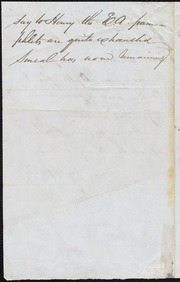 say to Henry the EA pam-
phlets are quite exhausted
Smeal has none remaining